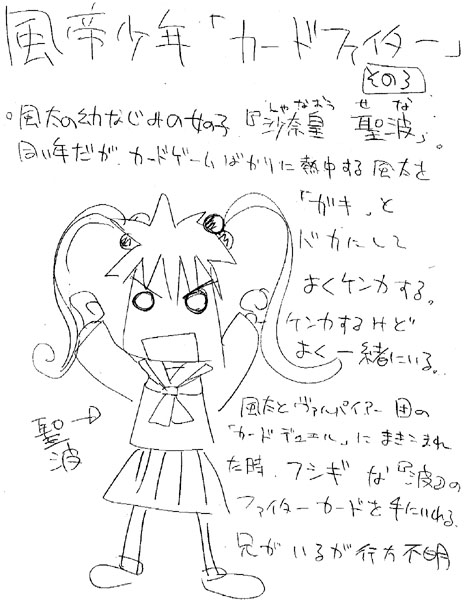 風帝少年「カードファイター」
その3
。風太の幼なじみの女の子『沙奈皇 聖波』。
しゃなおう せな
同い年だが、カードゲームばかりに熱中する風太を
「ガキ」と
バカにして
よくケンカする。
ケンカするけど
よく一緒にいる。
風太とヴァルパイアー団の
「カードデュエル」にまきこまれ
た時、フシギな『波』の
ファイターカードを手にいれる。
兄がいるが行方不明
聖波→